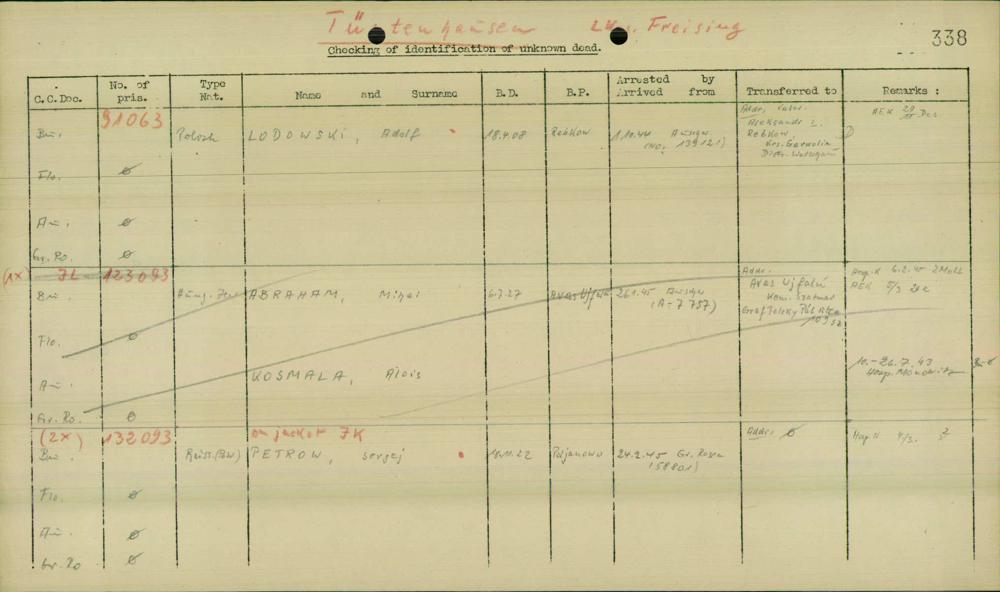 Tüntenhausen Lkr. Freising
338
Checking of identification of unknown dead.
C.C.Doc. No. of pris. Type Nat. Name and Surname B.D. B.P. Arrested by Arrived from Transferred to Remarks :
91063
Bu. Polozh LODOWSKI, Adolf 18.9.08 Rebkow 1.10.44 Auschw. (No. 139121)
Addr. Vater
Aleksandr L.
Rebkow,
Krs. Garwolin
Distr. Warschau
AEK
Flo. ø
Au. ø
Gr. Ro. ø
(1x) JL 123093
Bu. Ung. Jew ABRAHAM, Mihai 6.7.27 Avas Ujfalu 26.1.45 Auschw (A-7757)
Addr.
Avas Ujfalu
Kom. Szatmar
Graf Teleky Pál
Hosp. K 6.2.45
AEK 5/3
Flo. ø
Au. KOSMALA, Alois
10.-26.7.43
Hosp. Monowitz
Gr. Ro. ø
(2x) 132093 on jacket JK
Bu. Russ. (BW) PETROW, Sergej 18.11.22 Poljanowo 24.2.45 Gr. Rosen (58801)
Addr. ø
Hosp 4/3.
Flo. ø
Au. ø
Gr. Ro ø